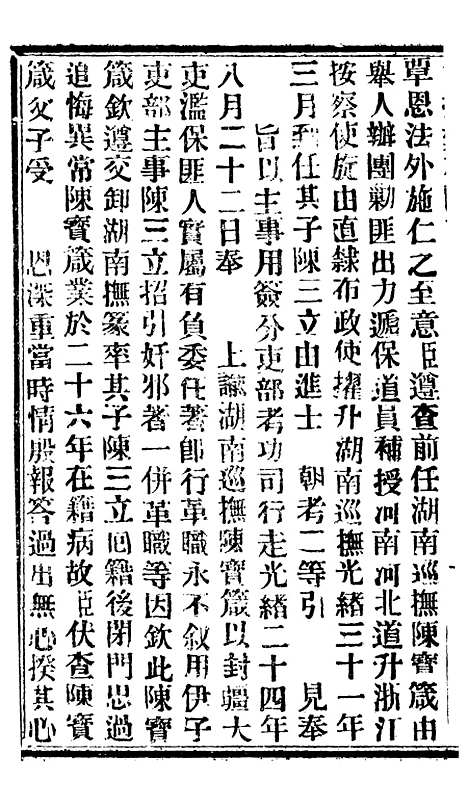 覃恩法外施仁之至意臣遵查前任湖南巡撫陳寶箴由
舉人辦團勦匪出力遞保道員補授河南河北道升浙江
按察使旋由直隸布政使擢升湖南巡撫光緒三十一年
三月到任其子陳三立由進士 朝考二等引 見奉
旨以主事用簽分吏部考功司行走光緒二十四年
八月二十二日奉 上諭湖南巡撫陳寶箴以封疆大
吏濫保匪人實屬有負委任著即行革職永不敘用伊子
吏部主事陳三立招引奸邪著一併革職等因欽此陳寶
箴欽遵交卸湖南撫篆率其子陳三立囘籍後閉門思過
追悔異常陳寶箴業於二十六年在籍病故臣伏查陳寶
箴父子受 恩深重當時情殷報答過出無心揆其心